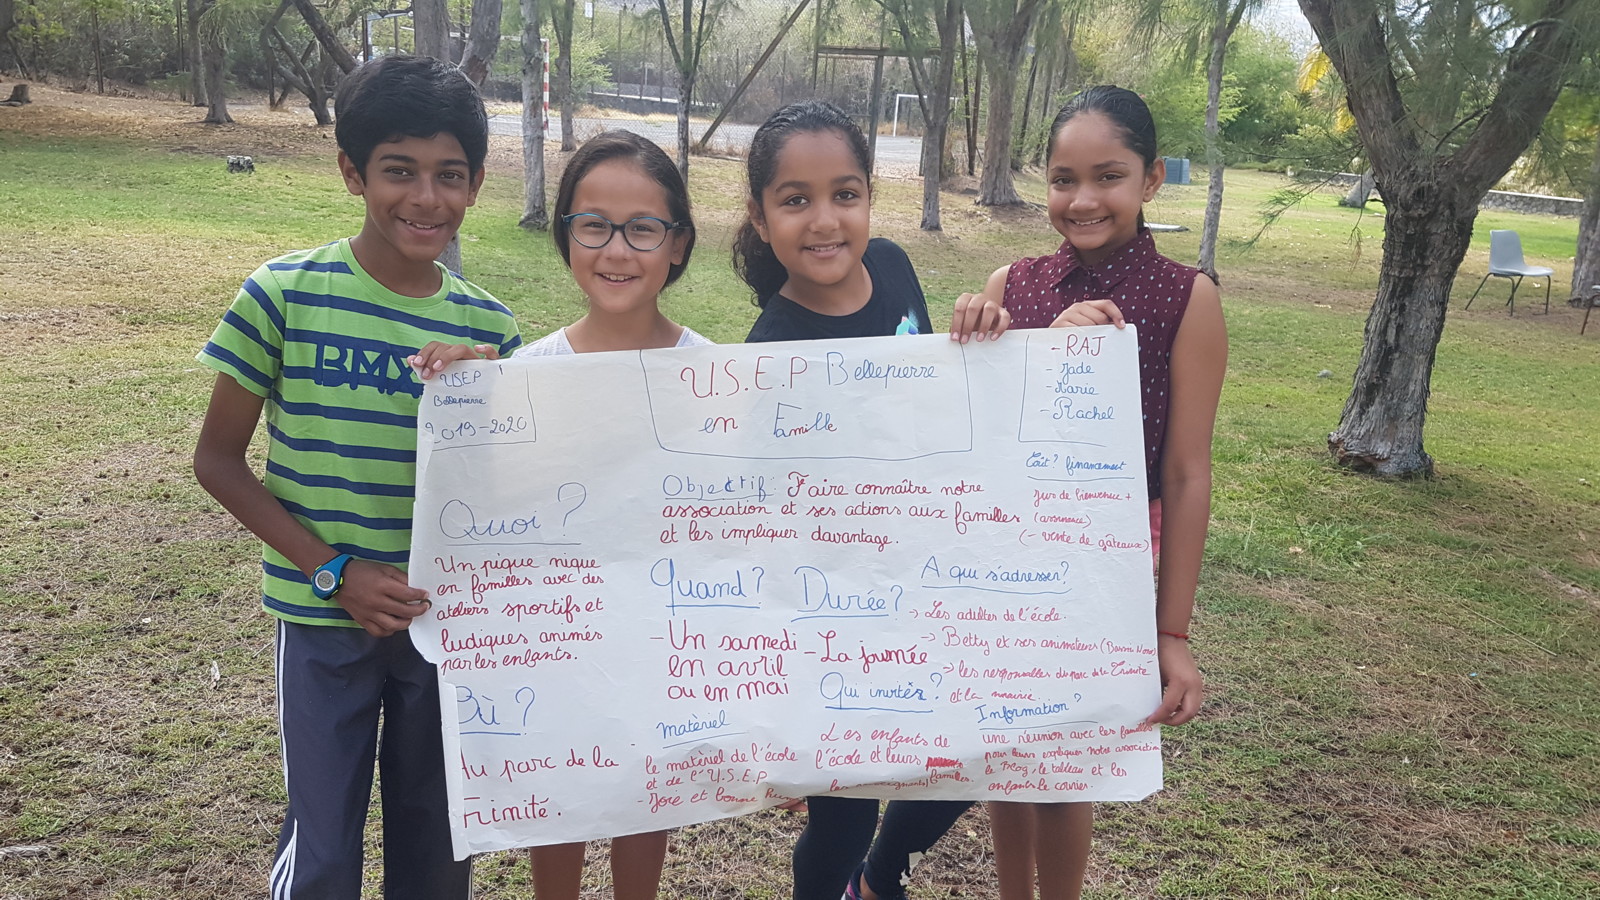 BMX
USEP
Bellepierre
2019-2020
U.S.E.P Bellepierre
en Famille
- RAJ
- Jade
- Marie
- Rachel
Quoi ?
Un pique nique
en familles avec des
ateliers sportifs et
ludiques animés
par les enfants.
Où ?
Au parc de la
Trinité.
Objectif: Faire connaître notre
association et ses actions aux familles
et les impliquer davantage.
Quand ?
- Un samedi
en avril
ou en mai
matèriel
le matèriel de l'école
et de l'U.S.E.P
- Joie et bonne
Durée ?
- La journée
Qui invitér ?
Les enfants de
l'école et leurs
familles.
Coût ? financement
Jus de bienvenue +
(assurance)
(- vente de gâteaux)
A qui s'adresser ?
-> Les adultes de l'école.
-> Betty et ses animateurs
-> les responsables du parc de la Trinité
et la mairie.
Information ?
une réunion avec les familles
pour leurs expliquer notre association
le , le tableau et les
enfants le courier.